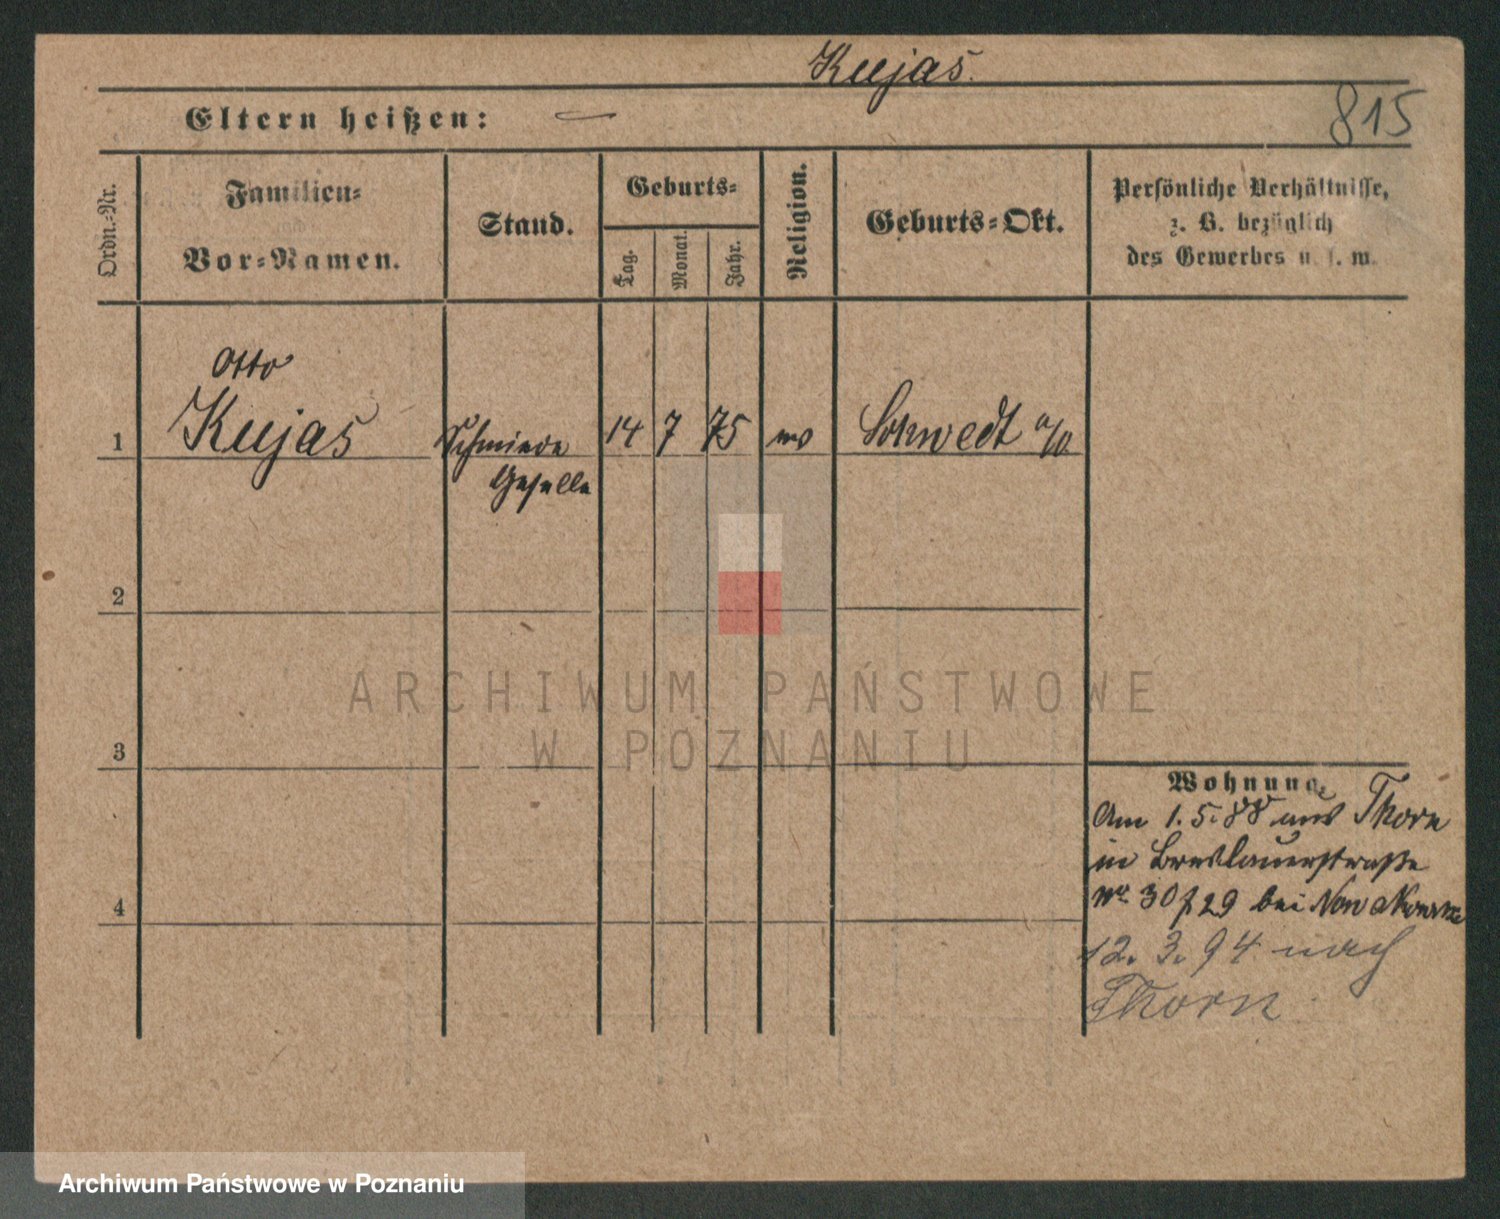 Kujas.
815
Eltern heißen: —
Ordn.-Nr.
Familien-
und
Vor-Namen.
Stand.
Geburts-
Tag.
Monat.
Jahr.
Religion.
Geburts-Okt.
Persönliche Verhältnisse,
z. B. bezüglich
des Gewerbes u. s. w.
Otto
1 Kujas Schmiede 14 7 75 Schwedt a/O.
Geselle
2
3
4
ARCHIWUM PAŃSTWOWE
W POZNANIU
Wohnung
Am 1. 5. 88 aus Thorn
in Breslauerstraße
No. 30/29 bei
12. 3. 94 nach
Thorn
Archiwum Państwowe w Poznaniu